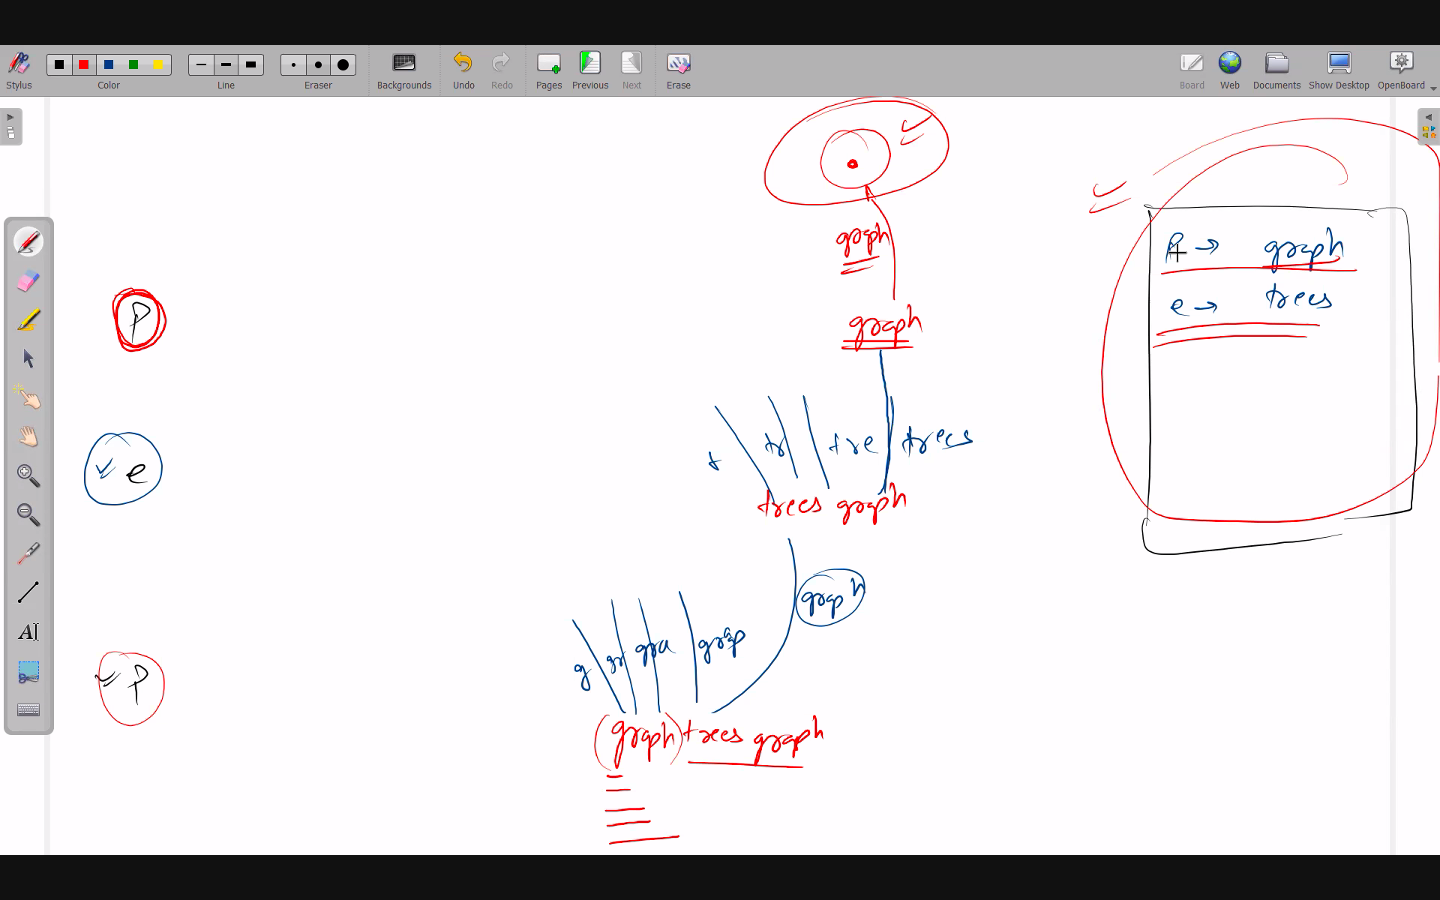 Stylus Color Line Eraser Backgrounds Undo Redo Pages Previous Next Erase Board Web Documents Show Desktop OpenBoard
graph
p → graph
e → trees
p
graph
t tr tre trees
e
trees graph
graph
g gr gra grap
p
(graph) trees graph